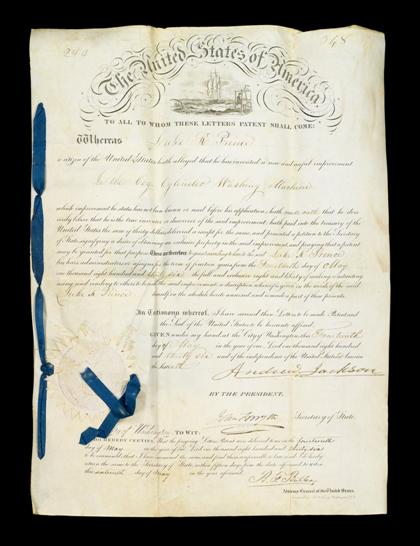 348
The United States of America
TO ALL TO WHOM THESE LETTERS PATENT SHALL COME:
Whereas
a citizen of the United States, hath alleged that he has invented a new and useful improvement
In the Cylinder Washing Machine
which improvement he states has not been known or used before his application; hath made oath that he does
verily believe that he is the true inventor or discoverer of the said improvement; hath paid into the treasury of the
United States the sum of thirty dollars, delivered a receipt for the same, and presented a petition to the Secretary
of State, signifying a desire of obtaining an exclusive property in the said improvement, and praying that a patent
may be granted for that purpose: These are therefore to grant, according to law, to the said
his heirs, administrators or assigns, for the term of fourteen years from the fourteenth day of May
one thousand eight hundred and thirty six the full and exclusive right and liberty of making, constructing,
using, and vending to others to be used, the said improvement; a description whereof is given in the words of the said
in the schedule hereto annexed, and is made a part of these presents.
In Testimony whereof, I have caused these Letters to be made Patent and
the Seal of the United States to be hereunto affixed.
GIVEN under my hand, at the City of Washington, this fourteenth
day of May in the year of our Lord one thousand eight hundred
and thirty six and of the independence of the United States of America
the sixtieth
Andrew Jackson
BY THE PRESIDENT,
John Forsyth Secretary of State.
City of Washington, TO WIT:
I DO HEREBY CERTIFY, That the foregoing Letters Patent were delivered to me on the fourteenth
day of May in the year of our Lord one thousand eight hundred and thirty six
to be examined; that I have examined the same, and find them conformable to law; and I do hereby
return the same to the Secretary of State, within fifteen days from the date aforesaid, to wit: on
this sixteenth day of May in the year aforesaid.
Attorney General of the United States.